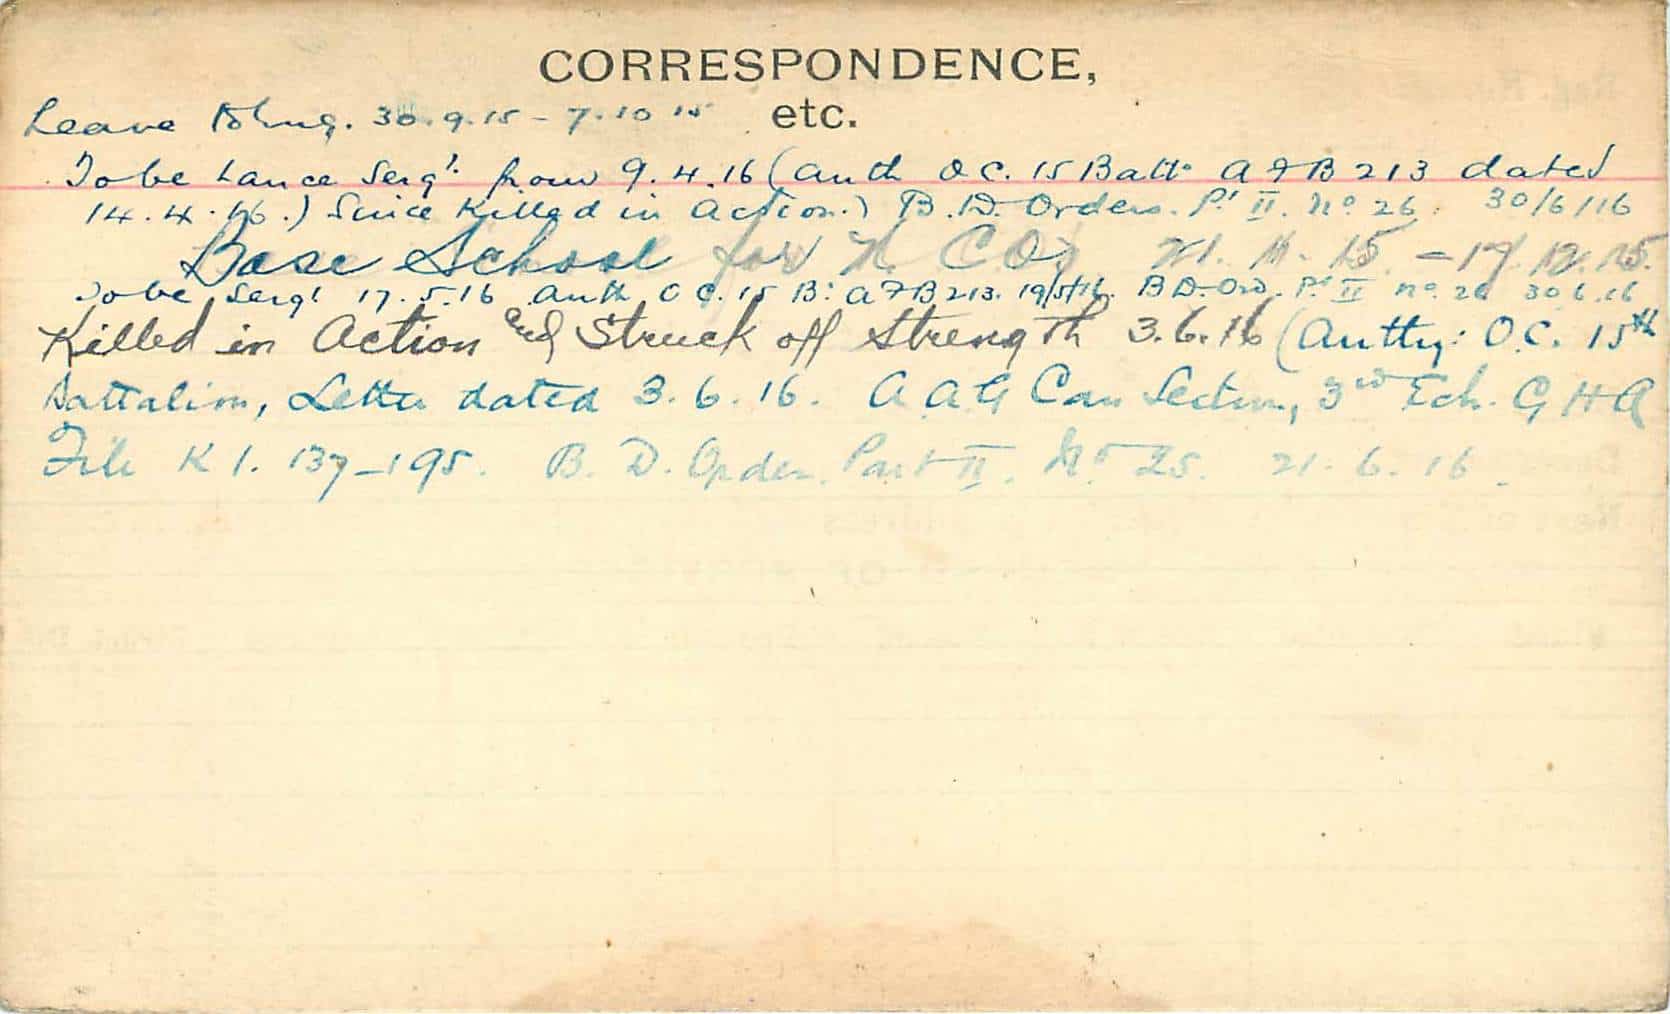 CORRESPONDENCE,
etc.
Leave to Eng. 30.9.15 - 7.10 15
To be Lance Sergt. from 9.4.16 (Auth O C. 15 Batt. A F B 213 dated
14.4.16.) Since Killed in Action.) B.D. Orders. Pt II. No 26. 30/6/16
Base School for N. C Os 21. 11. 15 - 17.12.15.
To be Sergt 17.5.16 Auth O C. 15 B: A F B 213. 19/5/16. B D. Ord. Pt II no. 26 30 6.16
Killed in Action and Struck off Strength 3.6.16 (Authy: O.C. 15th
Battalion, Letter dated 3.6.16. A A G Can Section, 3rd Ech. G H Q
File K 1. 137-195. B. D. Order. Part II. No 25. 21. 6. 16.